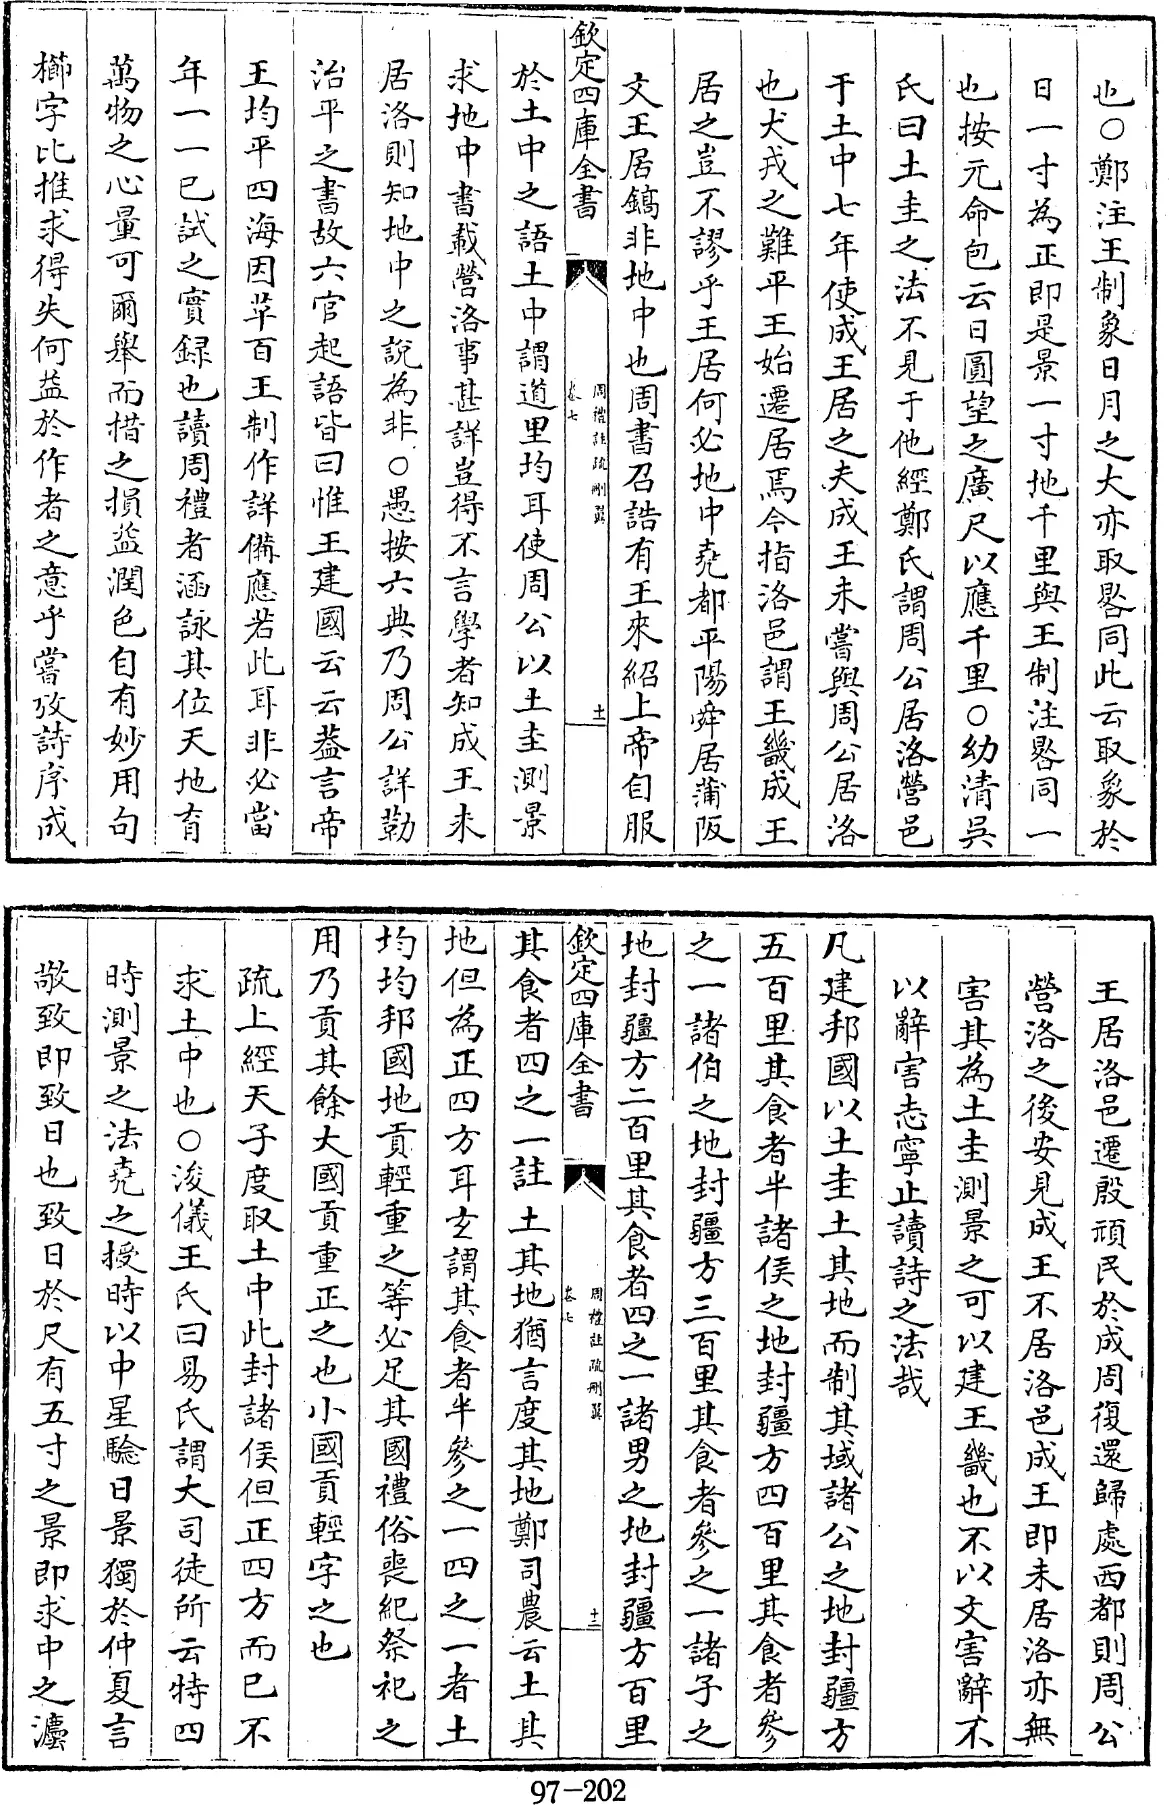 也○鄭注王制象日月之大亦取晷同此云取象於
日一寸為正即是景一寸地千里與王制注晷同一
也按元命包云日圓望之廣尺以應千里○幼清吳
氏曰土圭之法不見于他經鄭氏謂周公居洛營邑
于土中七年使成王居之夫成王未嘗與周公居洛
也犬戎之難平王始遷居焉今指洛邑謂王畿成王
居之豈不謬乎王居何必地中堯都平陽舜居蒲阪
文王居鎬非地中也周書召誥有王來紹上帝自服
欽定四庫全書
周禮註疏刪翼
卷七
十一
於土中之語土中謂道里均耳使周公以土圭測景
求地中書載營洛事甚詳豈得不言學者知成王未
居洛則知地中之說為非○愚按六典乃周公詳勒
治平之書故六官起語皆曰惟王建國云云葢言帝
王均平四海因革百王制作詳備應若此耳非必當
年一一已試之實録也讀周禮者涵詠其位天地育
萬物之心量可爾舉而措之損益潤色自有妙用句
櫛字比推求得失何益於作者之意乎嘗攷詩序成
王居洛邑遷殷頑民於成周復還歸處西都則周公
營洛之後安見成王不居洛邑成王即未居洛亦無
害其為土圭測景之可以建王畿也不以文害辭不
以辭害志寧止讀詩之法哉
凡建邦國以土圭土其地而制其域諸公之地封疆方
五百里其食者半諸侯之地封疆方四百里其食者參
之一諸伯之地封疆方三百里其食者參之一諸子之
地封疆方二百里其食者四之一諸男之地封疆方百里
欽定四庫全書
周禮註疏刪翼
卷七
十二
其食者四之一註土其地猶言度其地鄭司農云土其
地但為正四方耳玄謂其食者半參之一四之一者土
均均邦國地貢輕重之等必足其國禮俗喪紀祭祀之
用乃貢其餘大國貢重正之也小國貢輕字之也
疏上經天子度取土中此封諸侯但正四方而已不
求土中也○浚儀王氏曰易氏謂大司徒所云特四
時測景之法堯之授時以中星驗日景獨於仲夏言
敬致即致日也致日於尺有五寸之景即求中之灋
97-202